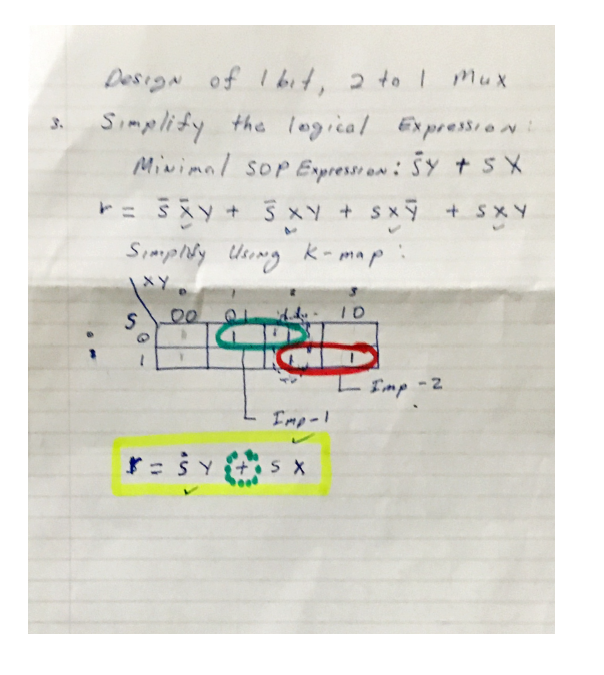 Design of 1 bit, 2 to 1 Mux
3. Simplify the logical Expression:
Minimal SOP Expression: S̄Y + SX
r = S̄X̄Y + S̄XY + SXȲ + SXY
Simplify Using K-map:
XY 0 1 2 3
S 00 01 10
0 0 1 1
1 1 1 1
Imp-2
Imp-1
r = S̄Y + SX